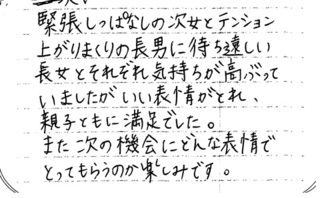 緊張しっぱなしの次女とテンション
上がりまくりの長男に待ち遠しい
長女とそれぞれ気持ちが高ぶって
いましたがいい表情がとれ、
親子ともに満足でした。
また次の機会にどんな表情で
とってもらうのか楽しみです。